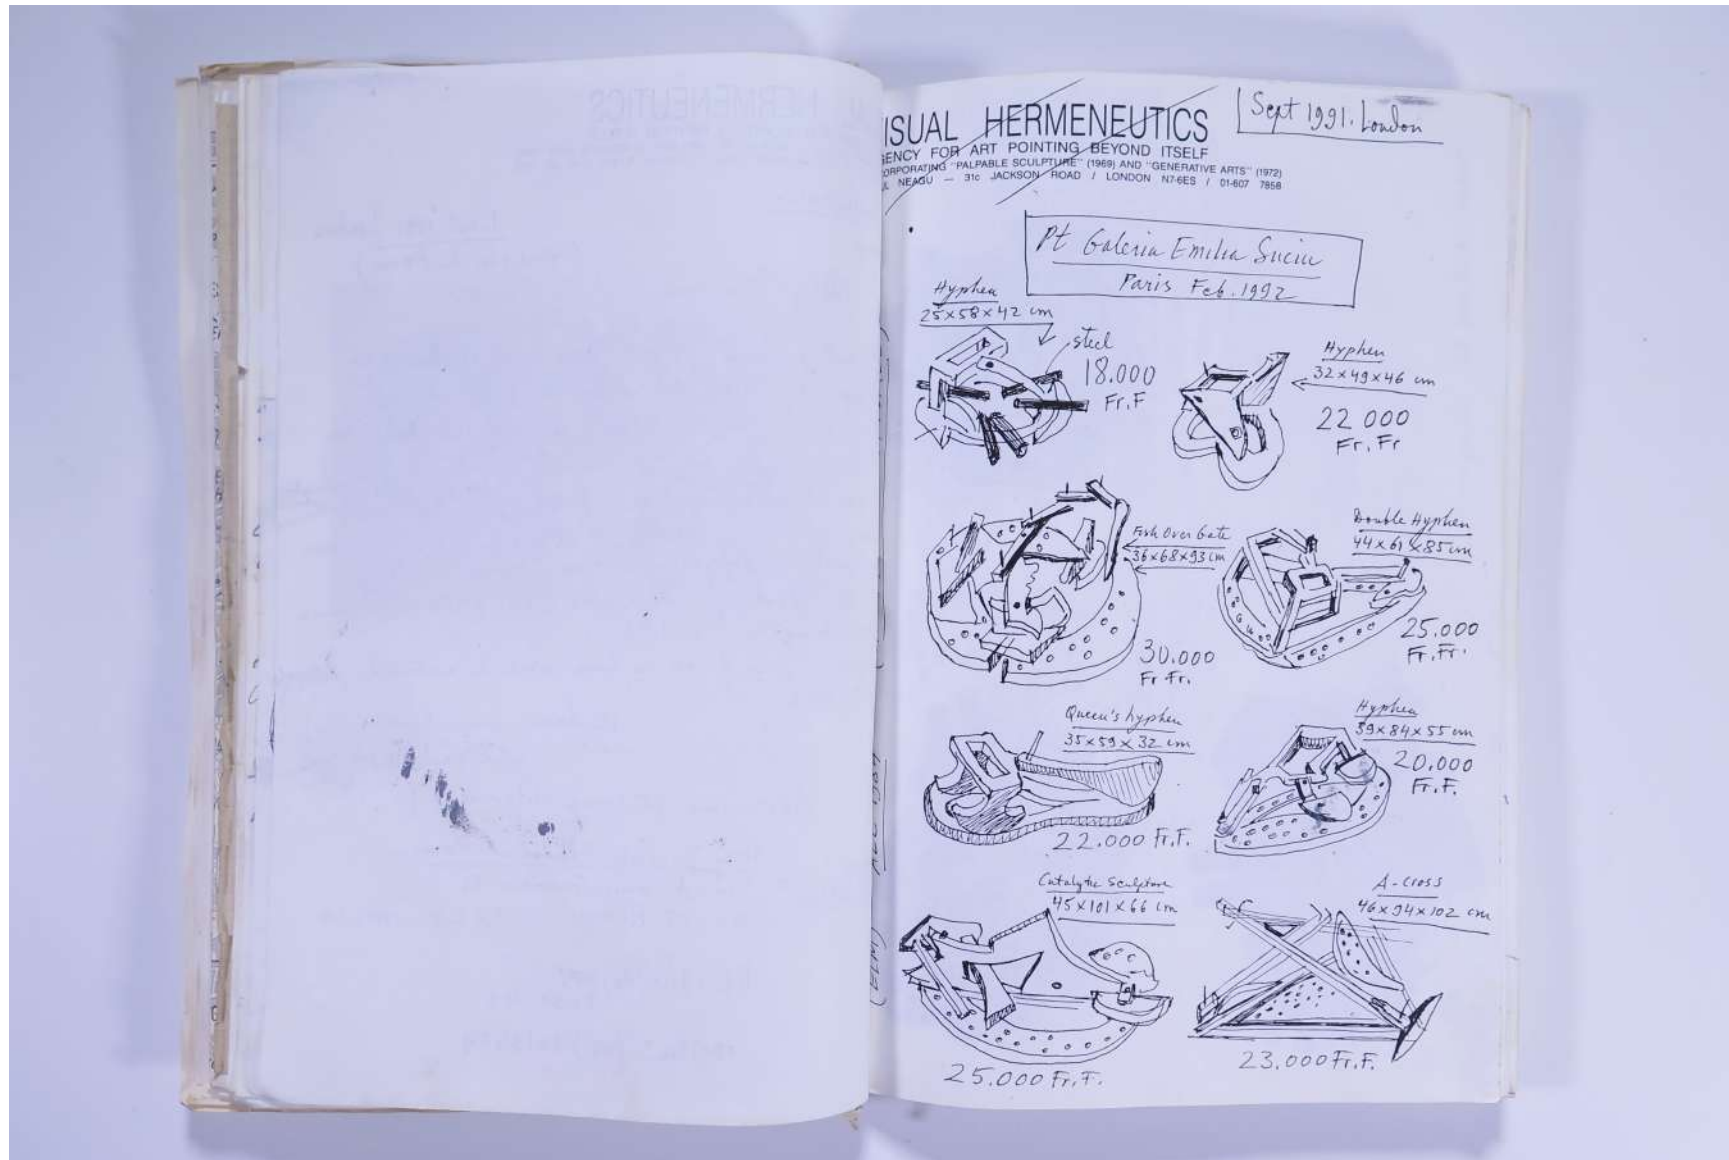 ISUAL HERMENEUTICS
GENCY FOR ART POINTING BEYOND ITSELF
CORPORATING "PALPABLE SCULPTURE" (1969) AND "GENERATIVE ARTS" (1972)
UL NEAGU — 31c JACKSON ROAD / LONDON N7-6ES / 01-607 7858
Sept 1991. London
Pt Galeria Emilia Suciu
Paris Feb. 1992
Hyphen
25x58x42 cm
steel
18.000
Fr.F
Hyphen
32x49x46 cm
22 000
Fr.Fr
Fish Over Gate
36x68x93 cm
30.000
Fr.Fr.
Double Hyphen
44x61x85 cm
25.000
Fr.Fr.
Queen's hyphen
35x59x32 cm
22.000 Fr.F.
Hyphen
39x84x55 cm
20.000
Fr.F.
Catalytic Sculpture
45x101x66 cm
25.000 Fr.F.
A-Cross
46x94x102 cm
23.000 Fr.F.